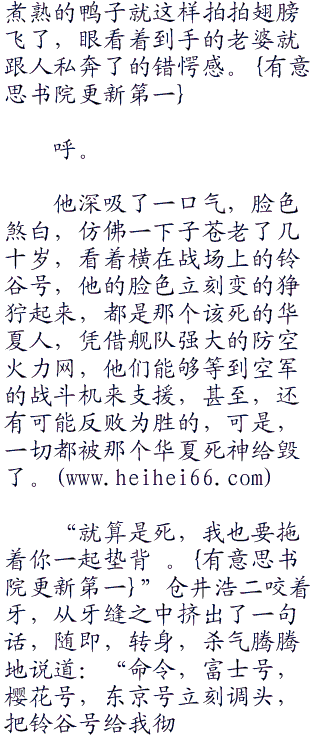 煮熟的鸭子就这样拍拍翅膀
飞了，眼看着到手的老婆就
跟人私奔了的错愕感。{有意
思书院更新第一}
呼。
他深吸了一口气，脸色
煞白，仿佛一下子苍老了几
十岁，看着横在战场上的铃
谷号，他的脸色立刻变的狰
狞起来，都是那个该死的华
夏人，凭借舰队强大的防空
火力网，他们能够等到空军
的战斗机来支援，甚至，还
有可能反败为胜的，可是，
一切都被那个华夏死神给毁
了。(www.heihei66.com)
“就算是死，我也要拖
着你一起垫背 。{有意思书
院更新第一}”仓井浩二咬着
牙，从牙缝之中挤出了一句
话，随即，转身，杀气腾腾
地说道：“命令，富士号，
樱花号，东京号立刻调头，
把铃谷号给我彻